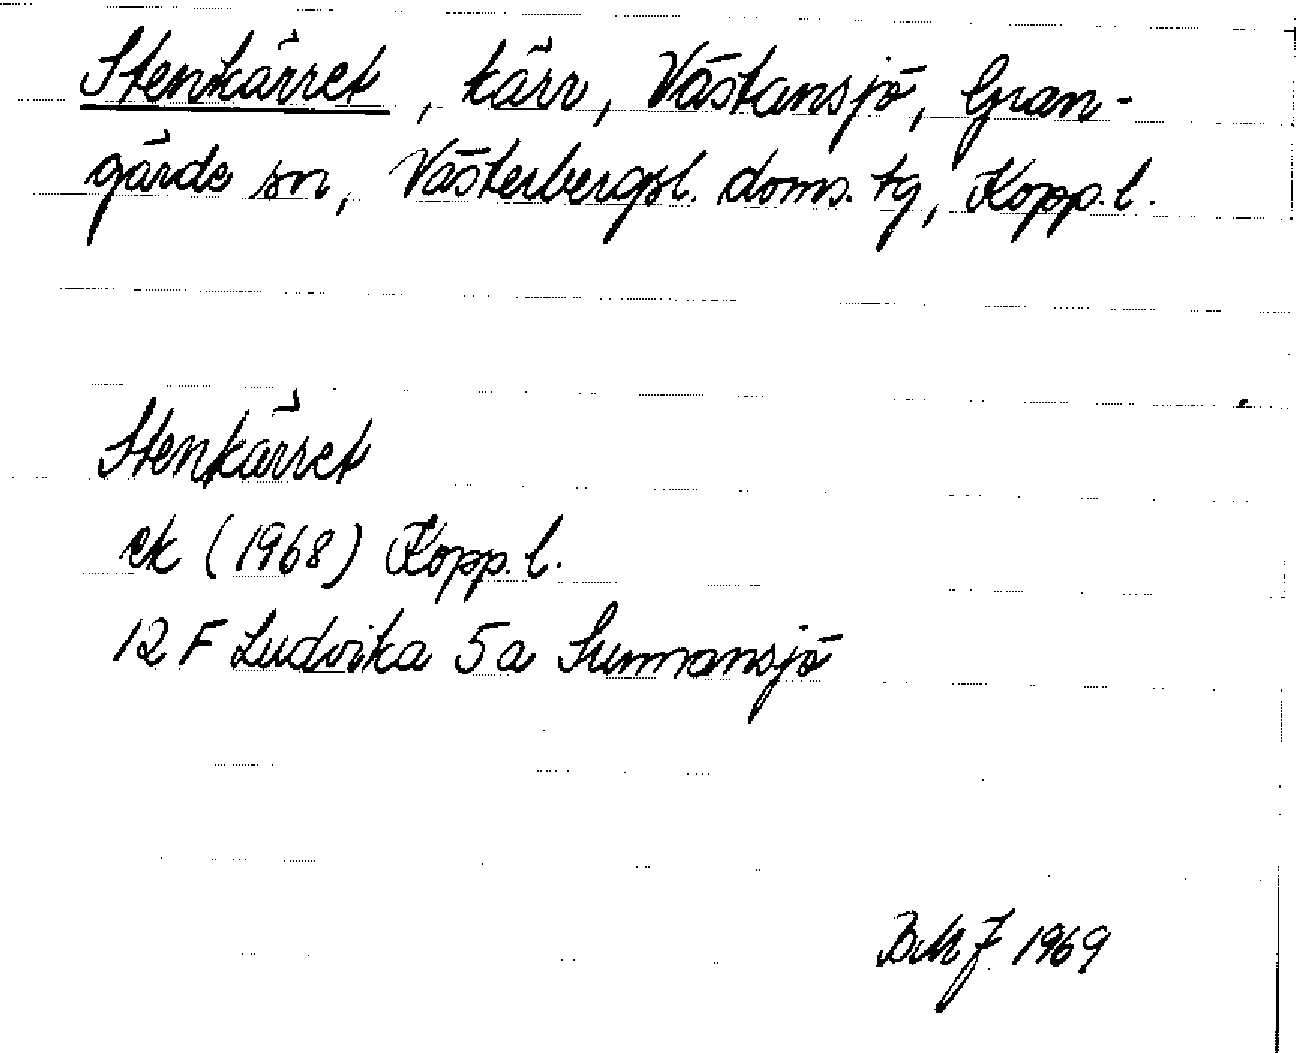 Stenkärret, kärr, Västansjö, Gran-
gärde sn, Västerbergsl. doms. tg, Kopp. l.
Stenkärret
ek (1968) Kopp. l.
12 F Ludvika 5 a Sunnansjö
BMJ 1969